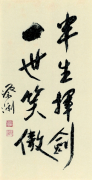 半生揮劍
一世笑傲